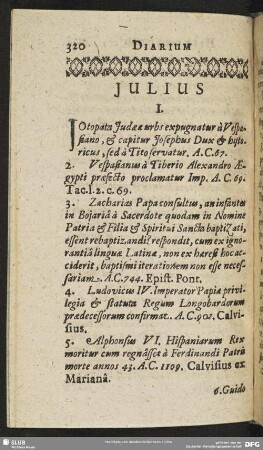 320 DIARIUM
JULIUS
I.
JOtopata Judææ urbs expugnatur à Vespa-
siano, & capitur Josephus Dux & histo-
ricus, sed à Tito servatur. A.C. 67.
2. Vespasianus à Tiberio Alexandro Æ-
gypti præfecto proclamatur Imp. A.C. 69.
Tac. l. 2. c. 69.
3. Zacharias Papa consultus, an infantes
in Bojariâ à Sacerdote quodam in Nomine
Patria & Filia & Spiritui Sancta baptizati,
essent rebaptizandi? respondit, cum ex igno-
rantiâ linguæ Latinæ, non ex hæresi hoc ac-
ciderit, baptismi iterationem non esse neces-
sariam. A.C. 744. Epist. Pont.
4. Ludovicus IV. Imperator Papiæ privi-
legia & statuta Regum Longobardorum
prædecessorum confirmat. A.C. 901. Calvi-
sius.
5. Alphonsus VI. Hispaniarum Rex
moritur cum regnâsset à Ferdinandi Patris
morte annos 43. A.C. 1109. Calvisius ex
Marianâ.
6. Guido